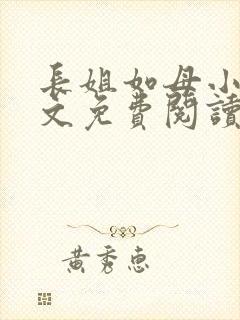 長姐如母小
文免費閱讀
黃秀惠